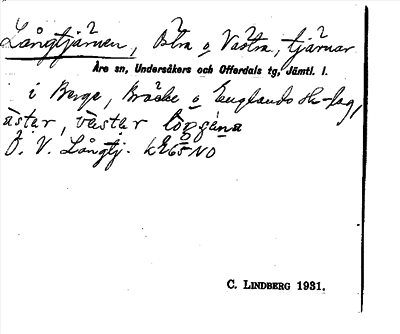 Långtjärnen, Östra o Västra, tjärnar
Åre sn, Undersåkers och Offerdals tg, Jämtl. l.
i Berge, Bräcke o Englands sk-lag,
Ö. V. Långtj. k E65NO
C. LINDBERG 1931.